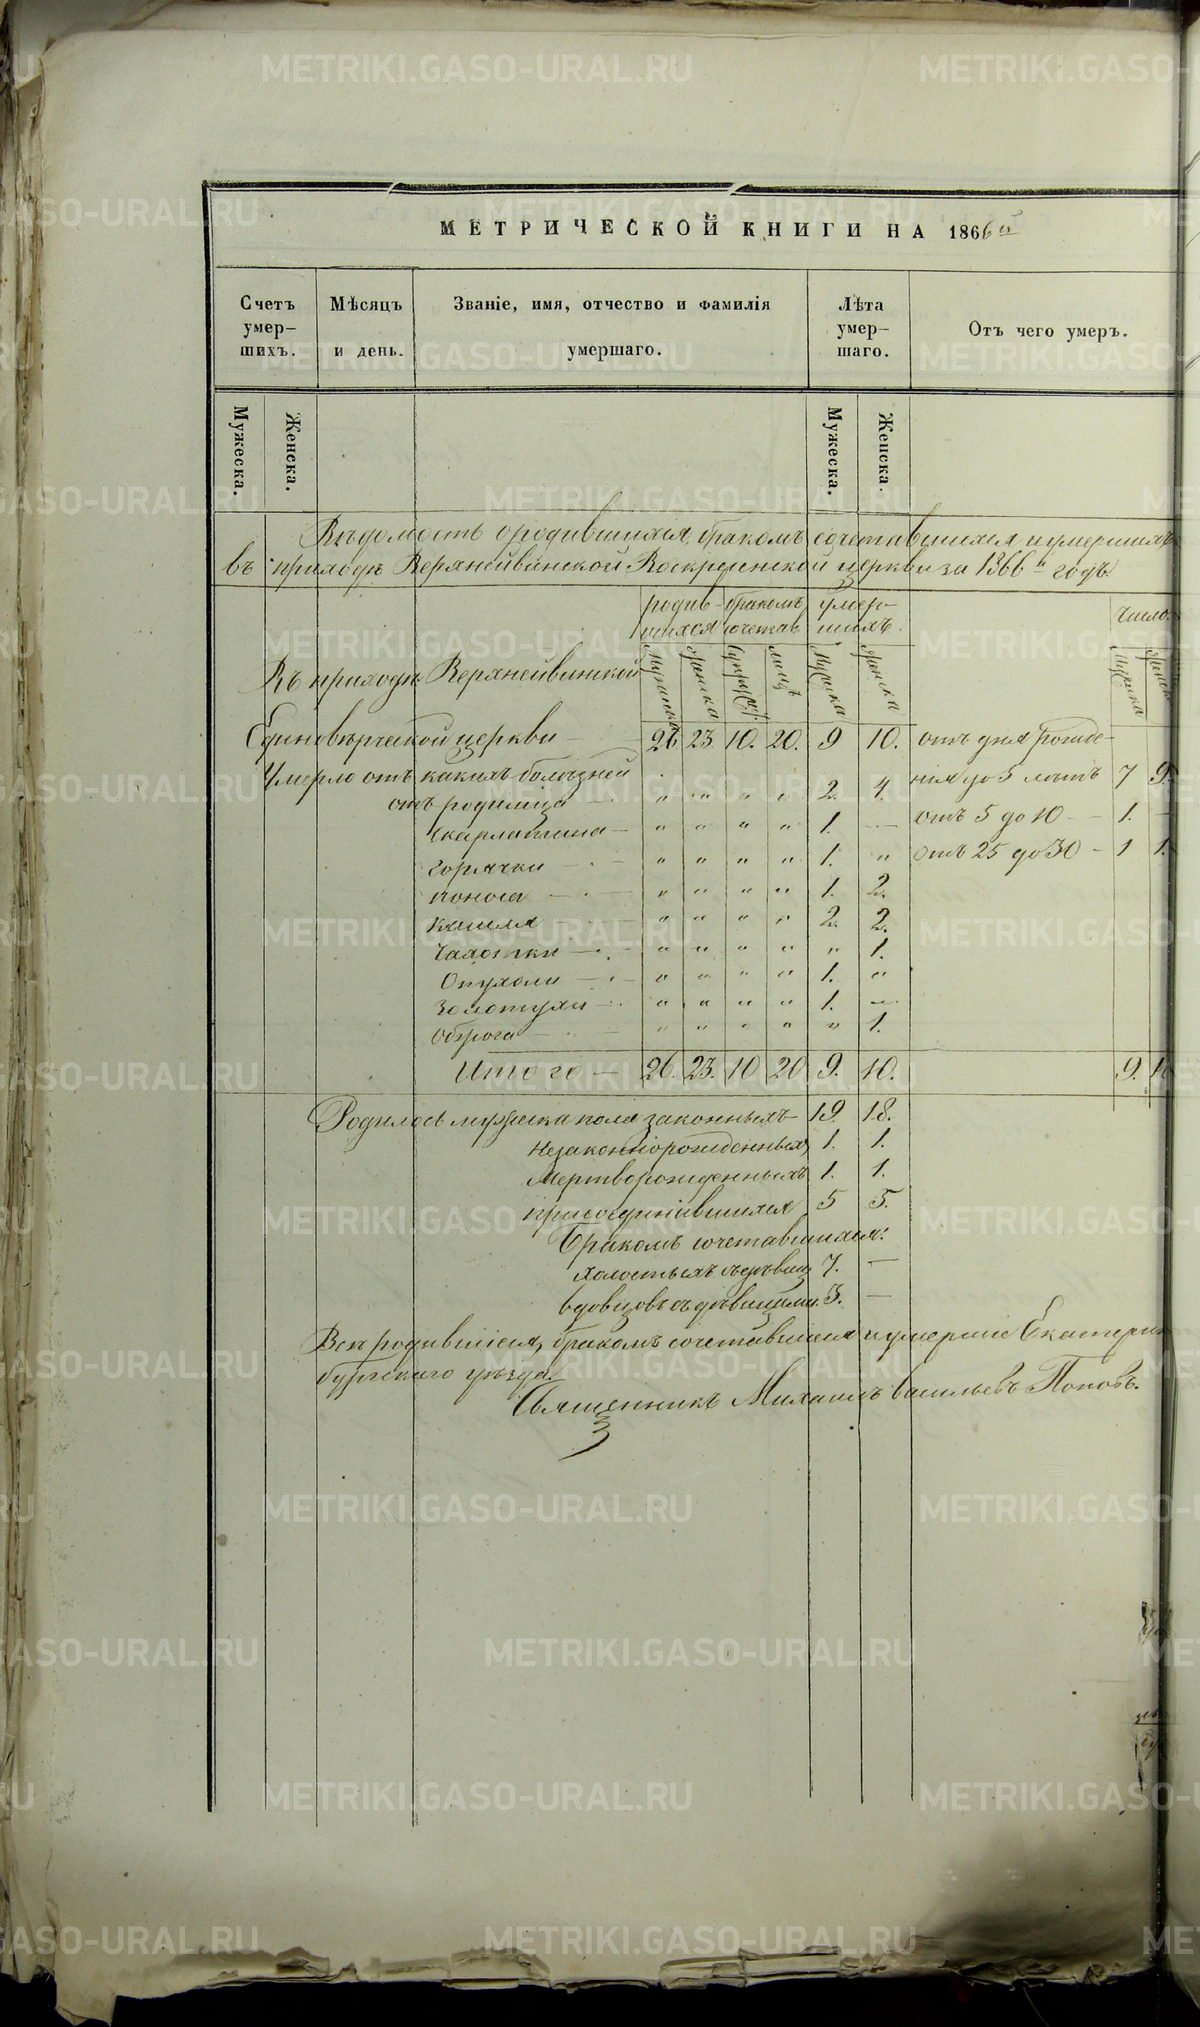 МЕТРИЧЕСКОЙ КНИГИ НА 1866й
Счетъ умер-шихъ.
Мѣсяцъ и день.
Званіе, имя, отчество и фамилія умершаго.
Лѣта умер-шаго.
Отъ чего умеръ.
Мужеска. Женска. Мужеска. Женска.
Вѣдомость о родившихся, бракомъ сочетавшихся и умершихъ
въ приходѣ Верхнейвинской Воскресенской церкви за 1866й годъ.
родив- бракомъ умер- Число.
шихся сочетав шихъ.
Въ приходѣ Верхнейвинской Мужеска Женска лицъ Мужеска Женска Мужеска
Единовѣрческой церкви — 26 23 10. 20. 9 10. отъ дня рожде-
Умерло отъ какихъ болѣзней нія до 5 лѣтъ 7 9.
отъ родимца — " " " " 2. 4. отъ 5 до 10 — 1. —
Скарлатина — " " " " 1. — отъ 25 до 30 — 1 1.
горячки — " " " " 1. "
поноса — " " " " 1. 2.
кашля — " " " " 2. 2.
Чахотки — " " " " " 1.
Опухоли — " " " " 1. "
Золотухи — " " " " 1. —
— " " " " " 1.
Итого — 26. 23. 10 20 9. 10. 9. 10
Родилось мужеска пола законныхъ — 19. 18.
Незаконнорожденныхъ 1. 1.
Мертворожденныхъ 1. 1.
присоединившихся 5 5.
Бракомъ сочетавшихся:
холостыхъ съ дѣвиц 7. —
вдовцовъ съ дѣвицами. 3. —
Всѣ родившіеся, бракомъ сочетавшіеся и умершіе Екатерин
бургскаго уѣзда.
Священникъ Михаилъ Васильевъ Поповъ.
METRIKI.GASO-URAL.RU